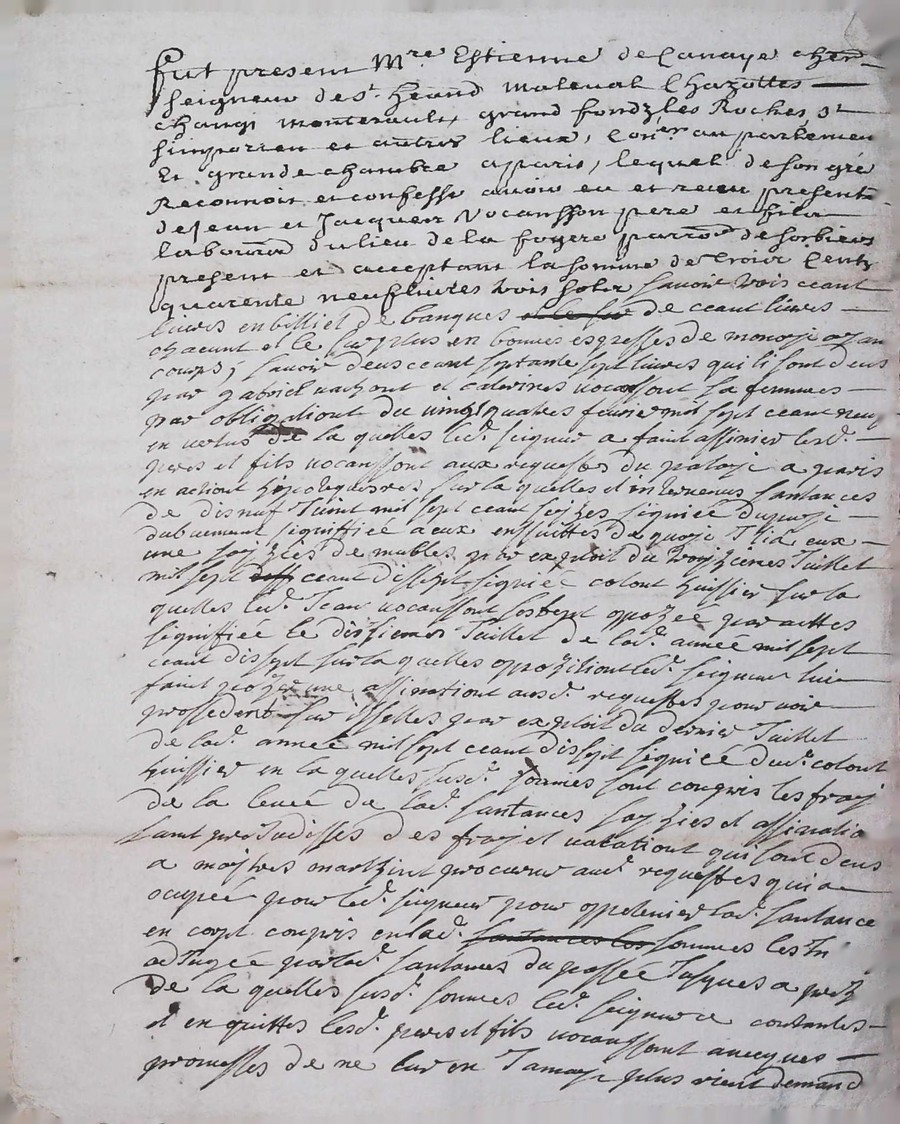 fut present Mre. Estienne de Canaye cher
seigneur de st. heand Maleval Chazottes
changi monterault, grand fondz, les Roches, st
simporien et autres lieux, Coner. au parlemen
Et grande chambre a paris, lequel de son gré
Reconnoit et confesse avoir eu et receu presente
de Jean et Jacques Vocansson pere et fils
labourrs du lieu de la foyere parroe. de sorbiers
present et acceptant la somme de Trois Centz
quarente neuf livres trois solz savoir trois ceant
livres en billiet de banques de ceant livres
chacunt et le surplus en bonnes espesses de monoye ayan
cours, savoir deus ceant septante sept livres qui li sont deus
par gabriel vachont et caterines vocansont sa femmes
par obligationt du vingt quatres fevrier mil sept ceant neuf
en vertus de la quelles led. seigneur a faint assinier lesd.
peres et fils vocanssont aux requestes du palays a paris
en actiont hipotequeres sur la quelles et intervenus santances
de disneuf Juint mil sept ceant seizes signiée dupuje
dubuement signiffiée a eux ensuittes de quoye
une sayzies de mubles par exploit du Juillet
mil sept ceant dissept signiée colont huissier sur la
quelles led. Jean vocanssont s'estept oppozée par acttes
signiffiée le dizieme Juillet de lad. année mil sept
ceant dissept sur la quelles oppozitiont led. seigneur luie
faint pozer une assinationt ausd. requestes pour voir
prossedent sur isselles par exploit du dernier Juillet
de lad. année mil sept ceant dissept signiée dud. colont
huissier en la quelles susd. sommes sont compris les frays
de la levée de lad. santances sayzies et assinatio
sant prejudisses des frays et vacationt qui sont deus
a maistres marthint procureur aud. requestes qui a
ocupée pour led. seigneur pour opptenier lad. santance
en corpt compris en lad. sommes les In
adjugée par lad. santances du passée Jusques a pret
de la quelles susd. sommes led. seigneur ce contantes
et en quittes lesd. peres et fils vocanssont avecques
promesses de ne leur en Jamaye plus rient demand